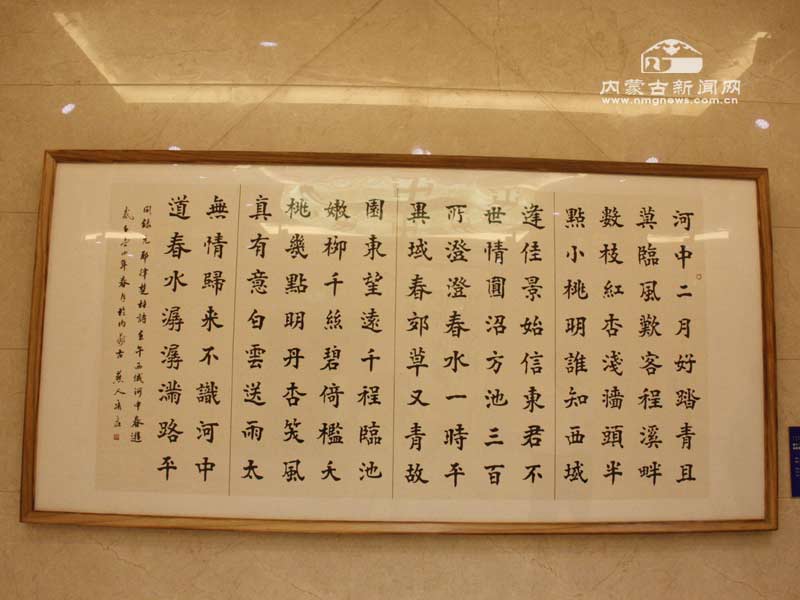 内蒙古新闻网
www.nmgnews.com.cn
河中二月好踏青且
莫臨風歎客程溪畔
數枝紅杏淺墻頭半
點小桃明誰知西域
逢佳景始信東君不
世情圓沼方池三百
所澄澄春水一時平
異域春郊草又青故
園東望遠千程臨池
嫩柳千絲碧倚檻夭
桃幾點明丹杏笑風
真有意白雲送雨太
無情歸来不識河中
道春水潺潺滿路平
錄元耶律楚材詩壬午西域河中春遊
年春月於内蒙古 燕人